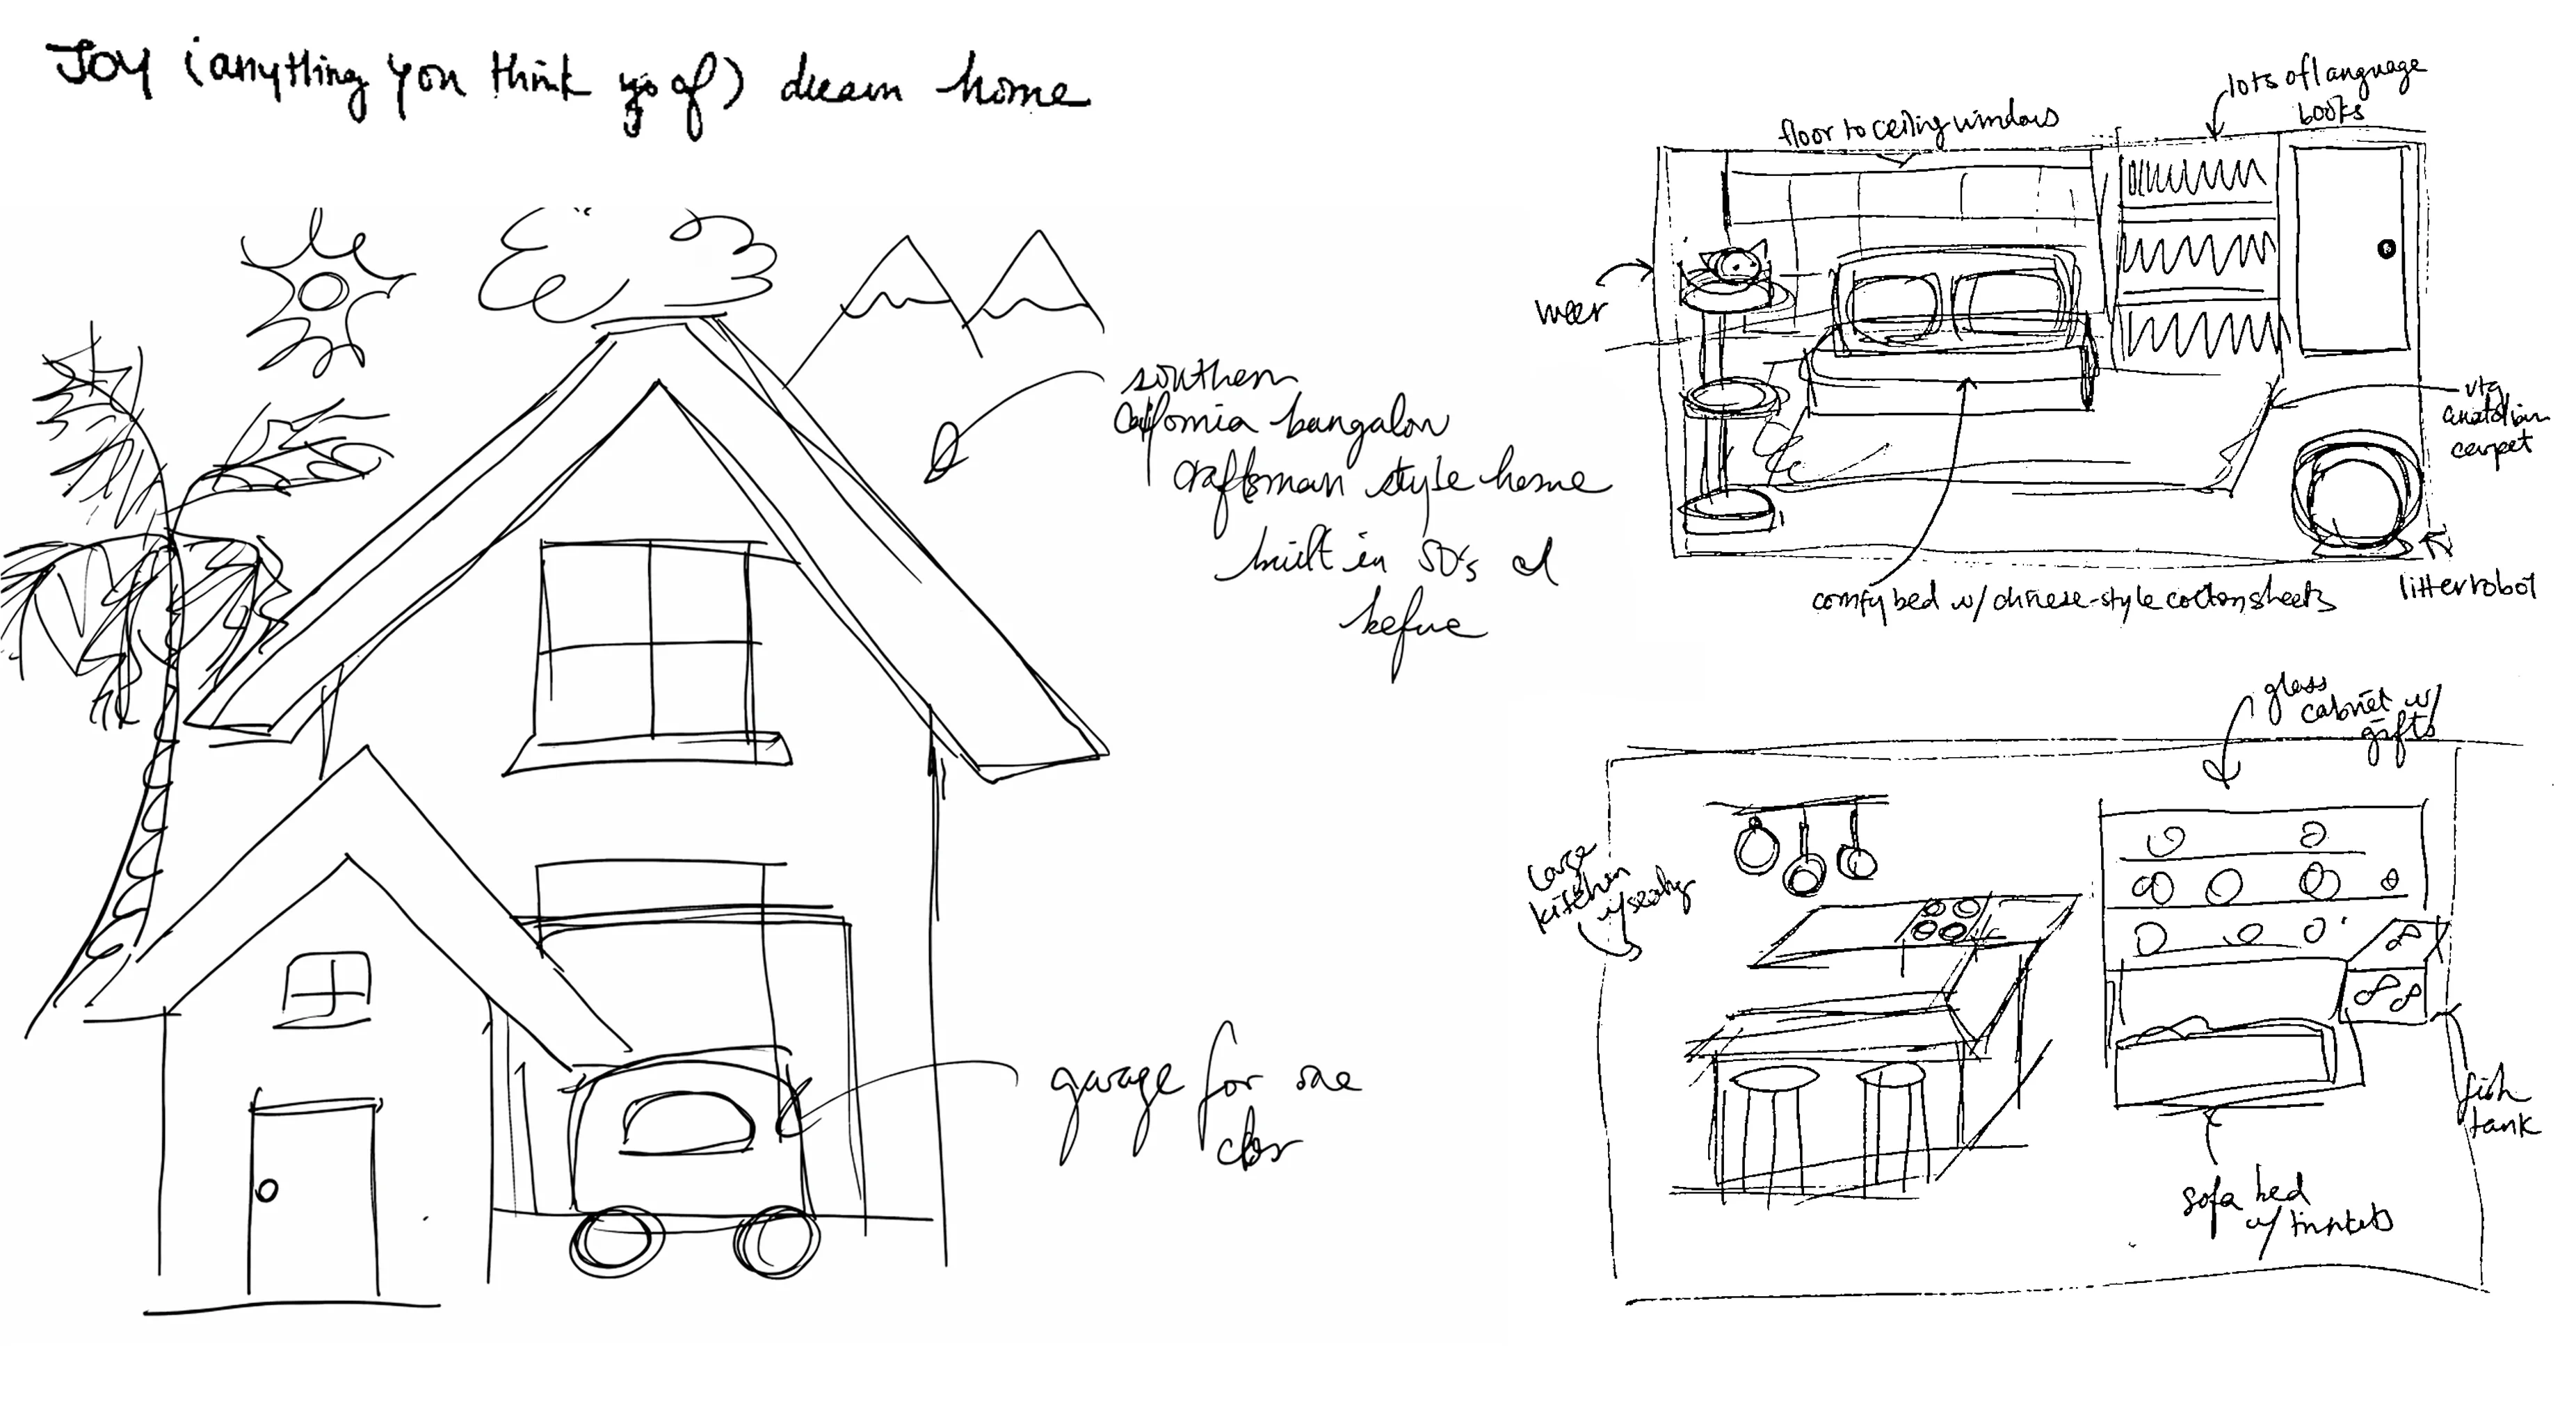 Joy (anything you think of) dream home
southern
California bangalow
craftsman style home
built in 50's
before
garage for one
floor to ceiling windows
lots of language
books
meer
vtg
anatolian
carpet
comfy bed w/ chinese-style cotton sheets
litter robot
glass
cabinet w/
gifts
large
kitchen
w/ seating
fish
tank
sofa bed
w/ trinkets